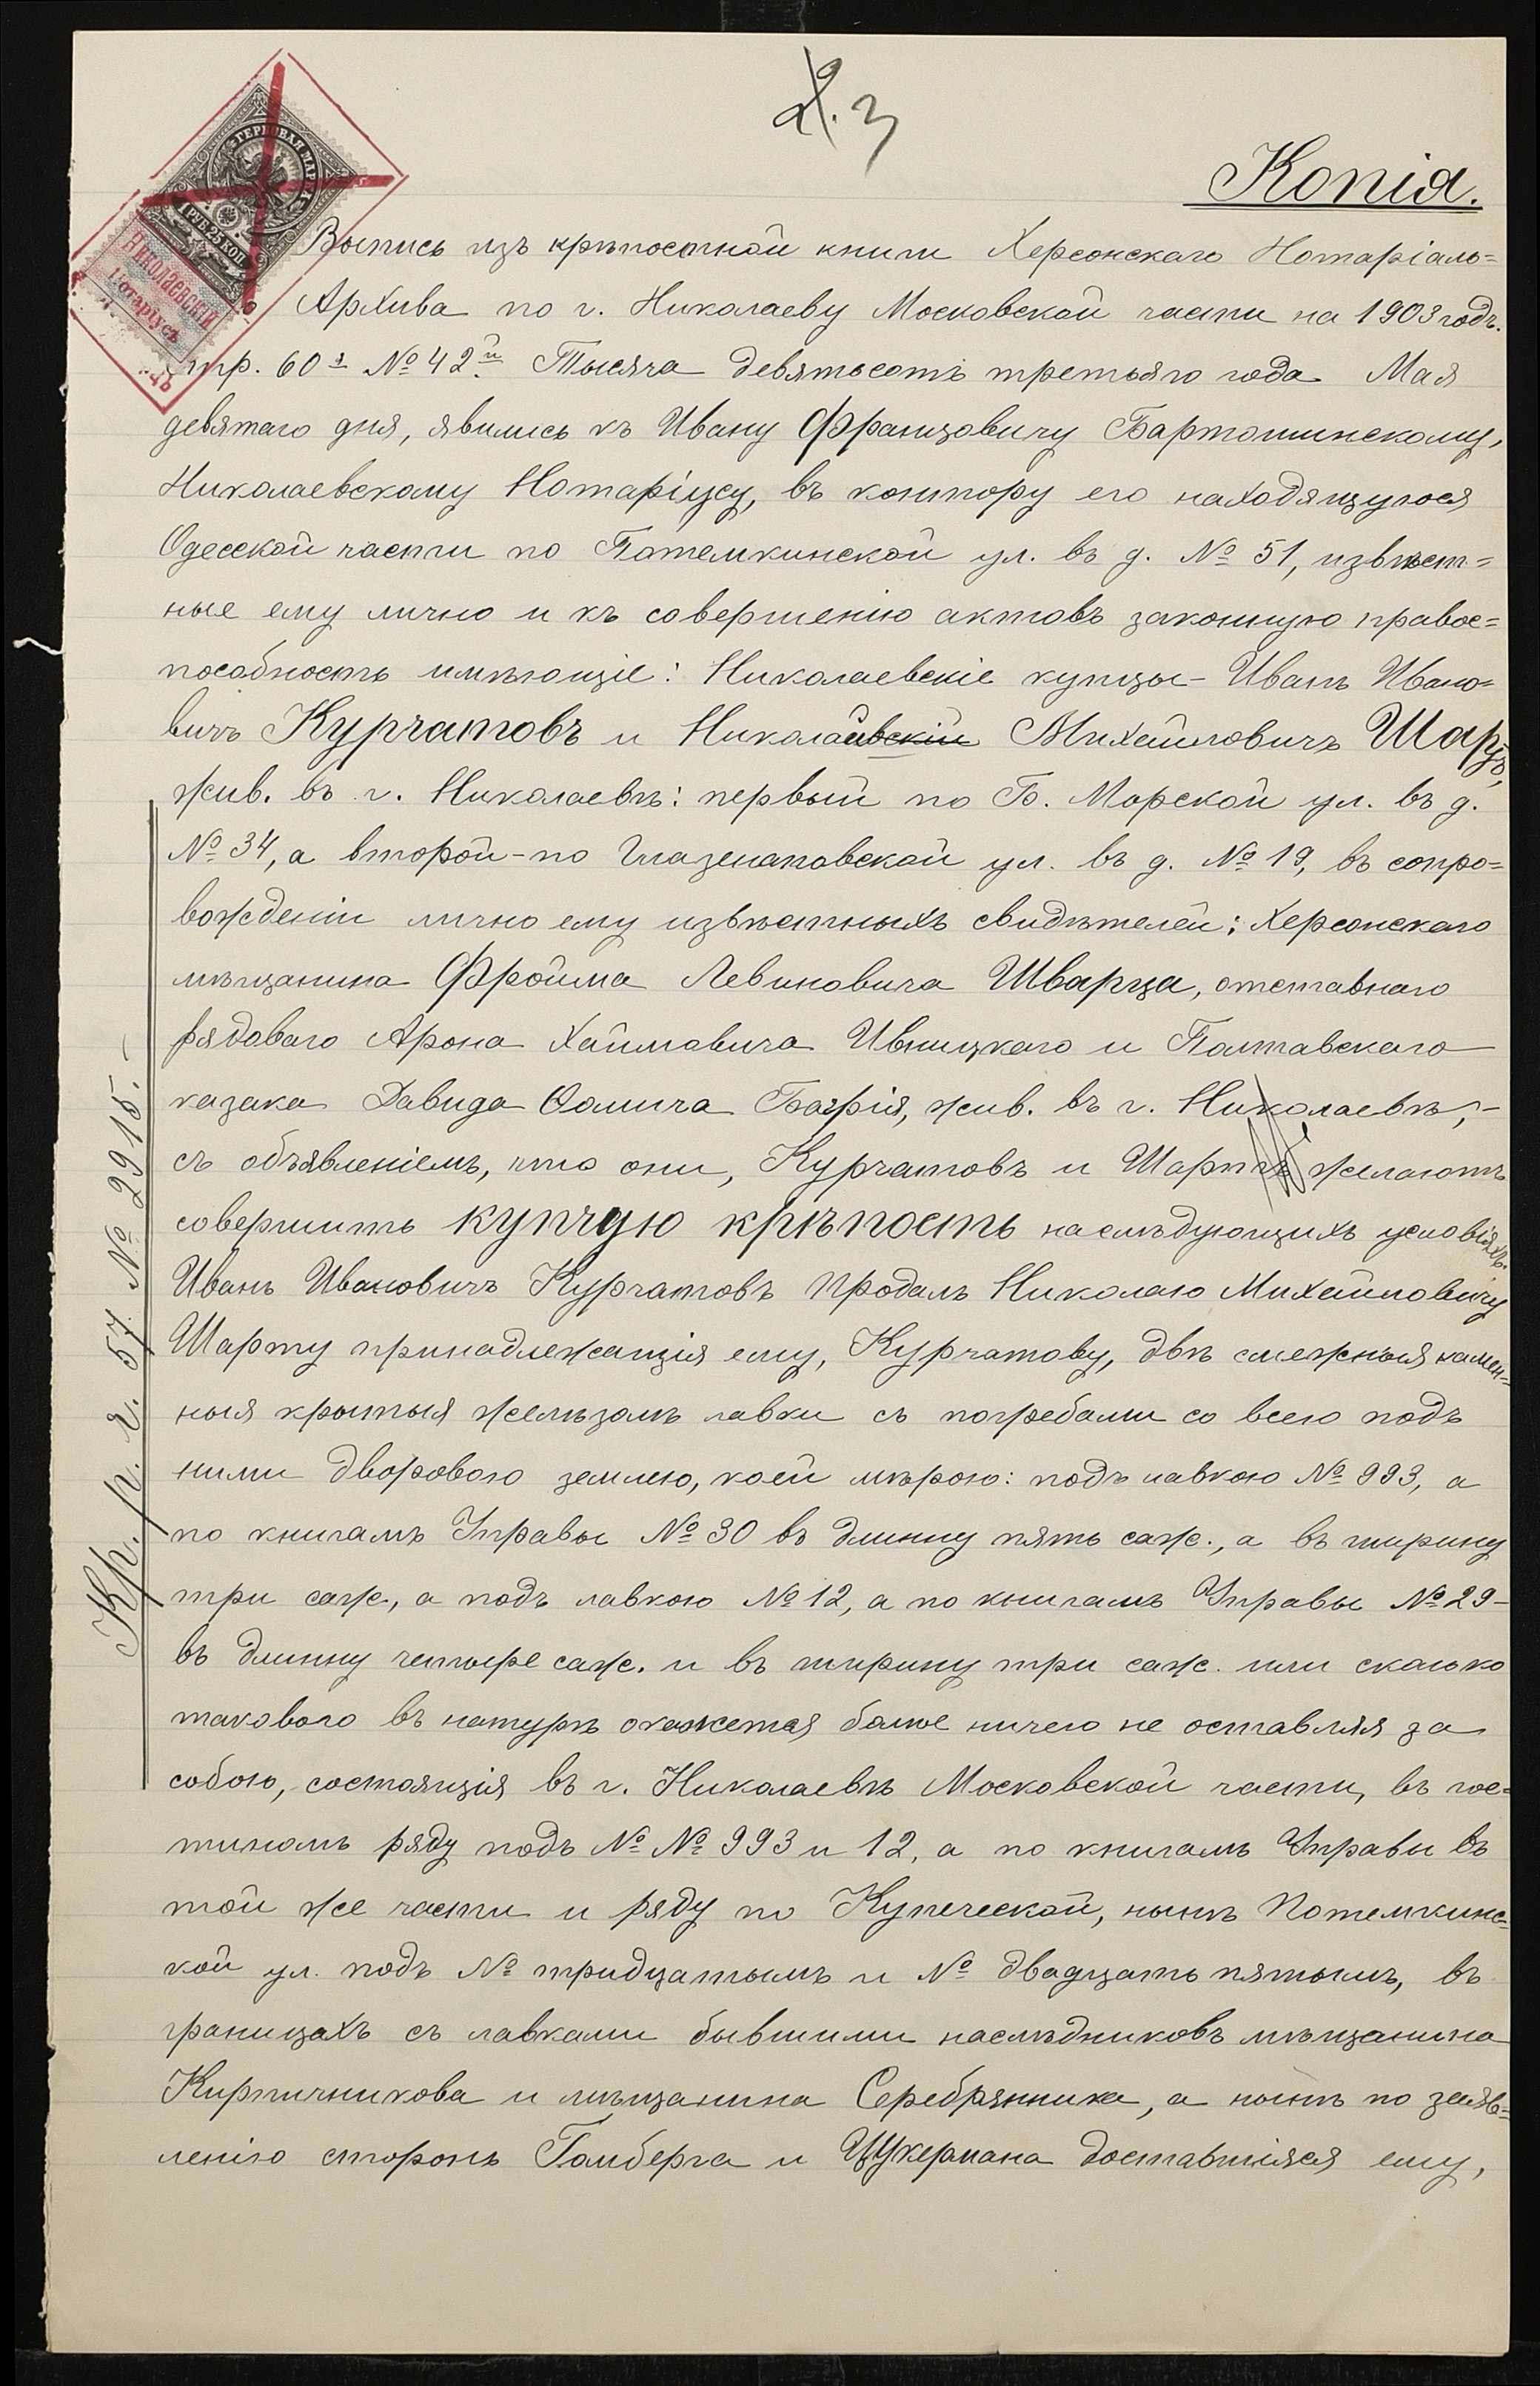 2. 3
Копія.
ГЕРБОВАЯ МАРКА
1 РУБ. 25 КОП.
Николаевскій
Нотаріусъ
Выпись изъ крѣпостной книги Херсонскаго Нотаріаль=
Архива по г. Николаеву Московской части на 1903 годъ.
стр. 60я № 42й. Тысяча девятьсотъ третьяго года Мая
девятаго дня, явились къ Ивану Францовичу Бартошинскому,
Николаевскому Нотаріусу, въ контору его находящуюся
Одесской части по Потемкинской ул. въ д. № 51, извѣст=
ные ему лично и къ совершенію актовъ законную правос=
пособность имѣющіе: Николаевскіе купцы - Иванъ Ивано=
вичъ Курчатовъ и Николай Михайловичъ Шартъ,
жив. въ г. Николаевѣ: первый по Б. Морской ул. въ д.
№ 34, а второй - по Глазенаповской ул. въ д. № 19, въ сопро=
вожденіи лично ему извѣстныхъ свидѣтелей: Херсонскаго
мѣщанина Фройма Левиновича Шварца, отставнаго
рядоваго Арона Хаимовича Ивницкаго и Полтавскаго
казака Давида Ѳомича Багрія, жив. въ г. Николаевѣ, -
съ объявленіемъ, что они, Курчатовъ и Шартъ желаютъ
совершить купчую крѣпость на слѣдующихъ условіяхъ:
Иванъ Ивановичъ Курчатовъ продалъ Николаю Михайловичу
Шарту принадлежащія ему, Курчатову, двѣ смежныя камен=
ныя крытыя желѣзомъ лавки съ погребами со всею подъ
ними дворовою землею, коей мѣрою: подъ лавкою № 993, а
по книгамъ Управы № 30 въ длинну пять саж., а въ ширину
три саж., а подъ лавкою № 12, а по книгамъ Управы № 29 -
въ длинну четыре саж. и въ ширину три саж. или сколько
таковаго въ натурѣ окажется болѣе ничего не оставляя за
собою, состоящія въ г. Николаевѣ Московской части, въ гос=
тиномъ ряду подъ № № 993 и 12, а по книгамъ Управы въ
той же части и ряду по Купеческой, нынѣ Потемкинс=
кой ул. подъ № тридцатымъ и № двадцать пятымъ, въ
границахъ съ лавками бывшими наслѣдниковъ мѣщанина
Кирпичникова и мѣщанина Серебрянника, а нынѣ по заяв=
ленію сторонъ Гамберга и Цукермана доставшіяся ему,
Кр. р. г. 57 № 2915. -